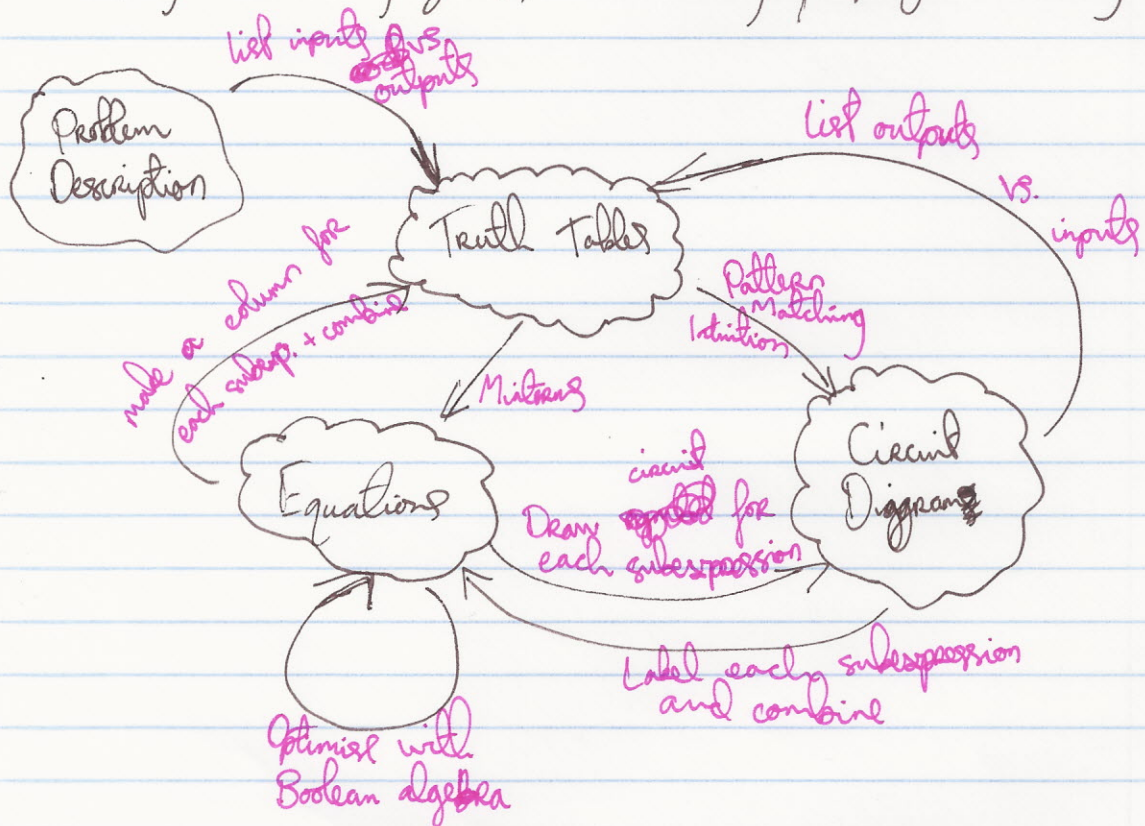 List inputs vs
outputs
Problem
Description
List outputs
vs.
inputs
Truth Tables
make a column for
each subexp. + combine
Pattern
Matching
Intuition
Minterms
Equations
Circuit
Diagram
circuit
Draw for
each subexpression
Label each subexpression
and combine
Optimise with
Boolean algebra